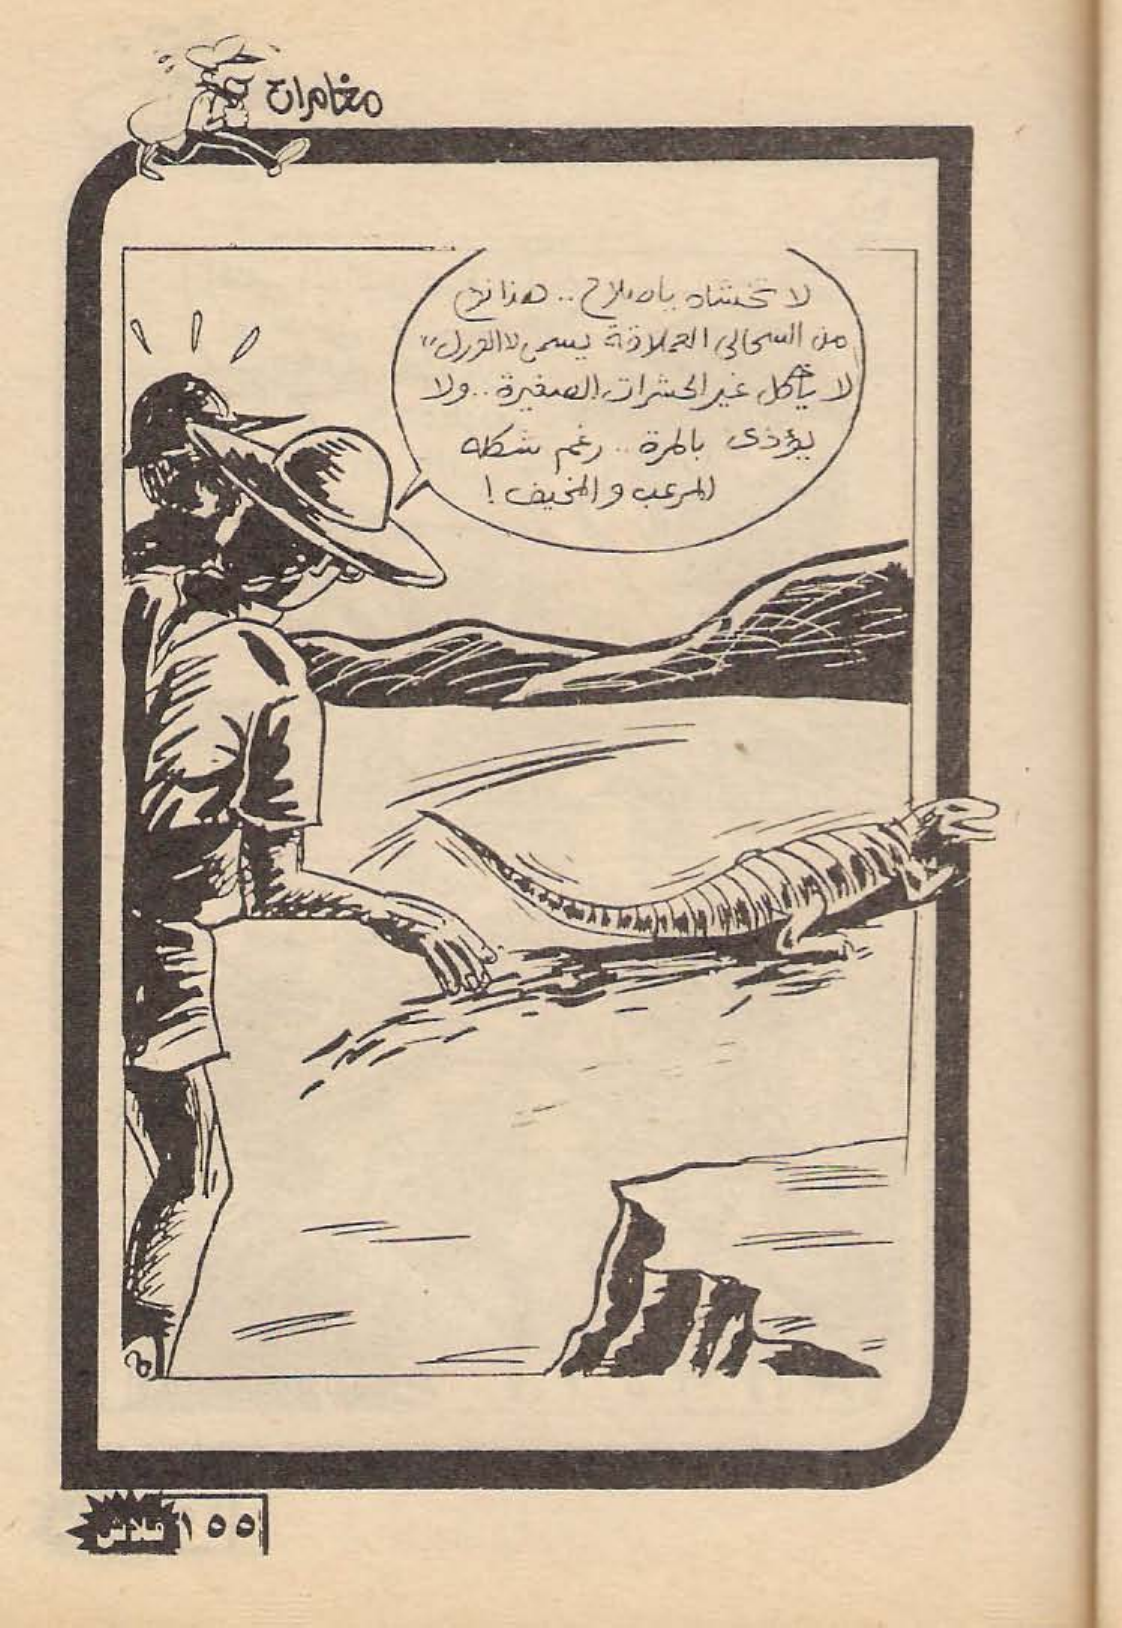 مغامرات
لا تخشاه يا صلاح .. هذا نوع
من السحالى العملاقة يسمى "الورل"
لا يأكل غير الحشرات الصغيرة .. ولا
يؤذى بالمرة .. رغم شكله
المرعب والمخيف !
فلاش ١٥٥